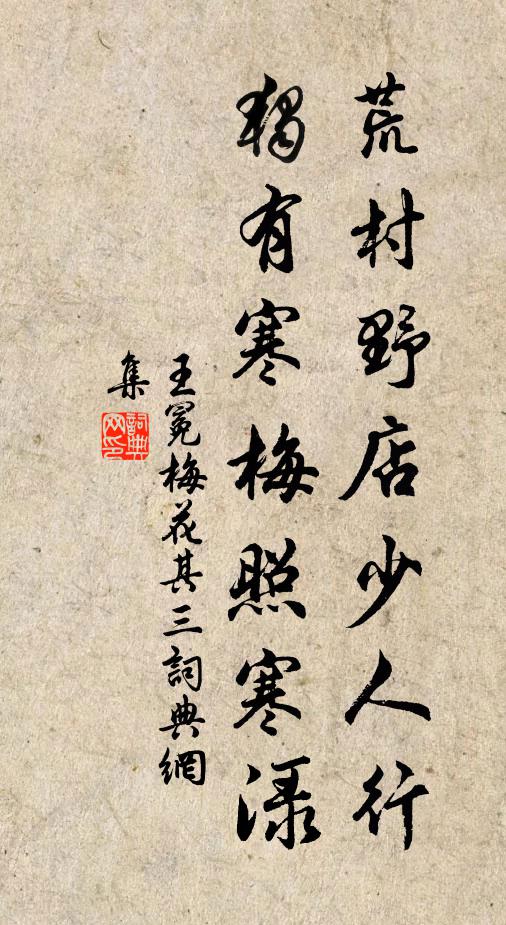 荒村野店少人行
獨有寒梅照寒渌
王冕梅花其三詞典網
集
詞典
网印